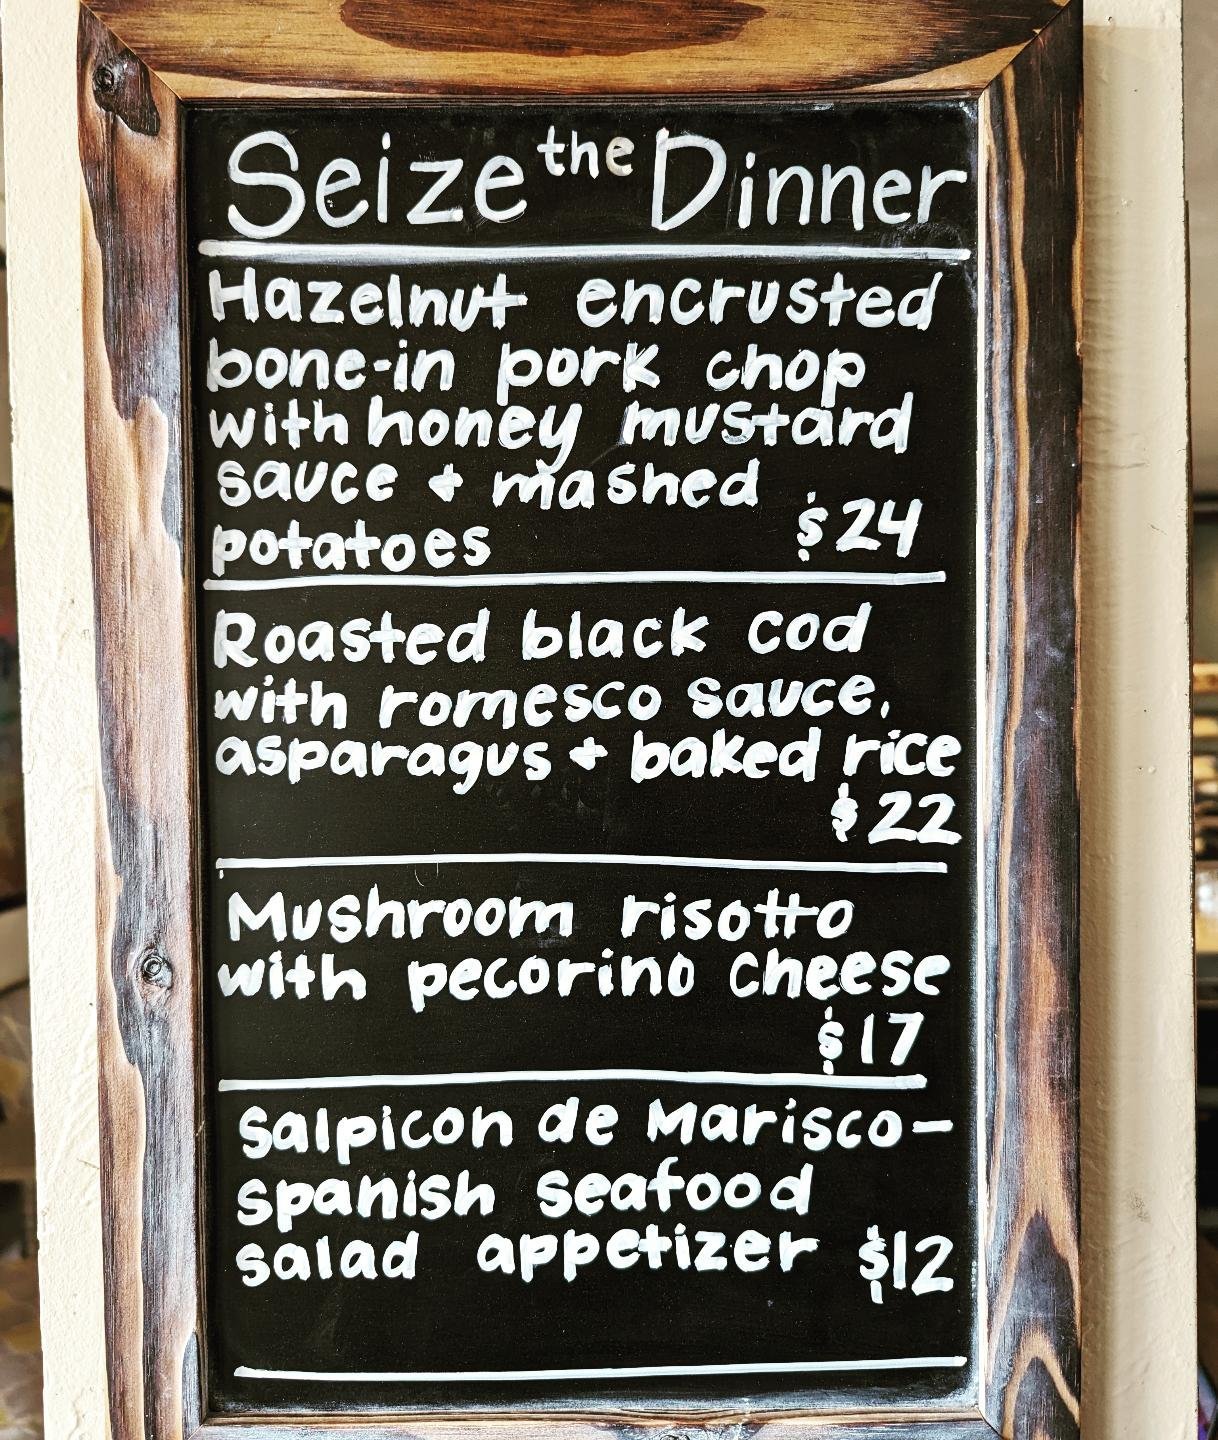 Seize the Dinner
Hazelnut encrusted
bone-in pork chop
with honey mustard
sauce + mashed
potatoes $24
Roasted black cod
with romesco sauce,
asparagus + baked rice
$22
Mushroom risotto
with pecorino cheese
$17
Salpicon de Marisco-
spanish seafood
salad appetizer $12